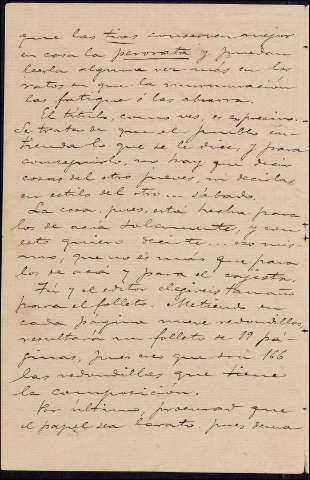 que las tías conserven mejor
en casa la perorata y puedan
leerla alguna vez más en los
ratos en que la murmuración
las fatigue ó las aburra.
El título, como ves, es
Se trata de que el pueblo en-
tienda lo que se le dice, y para
conseguirlo, no hay que decir
cosas del otro jueves, ni decirlas
en estilo del otro... sábado.
La cosa, pues, está hecha para
los de acá solamente, y con
esto quiero decirte... eso mis-
mo, que no es más que para
los de acá y para el cajista.
Tú y el editor elegireis tamaño
para el folleto. Metiendo en
cada página nueve redondillas,
resultará un folleto de 19 pá-
ginas, pues creo que son 166
las redondillas que tiene
la composición.
Por último, procurad que
el papel sea barato, pues dema-